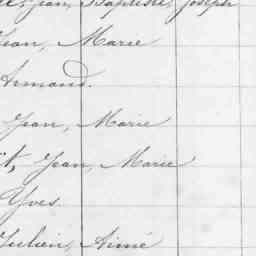 Jean, Baptiste, Joseph
Jean, Marie
Armand.
Jean, Marie
Jean, Marie
Yves.
Julien, Aimé